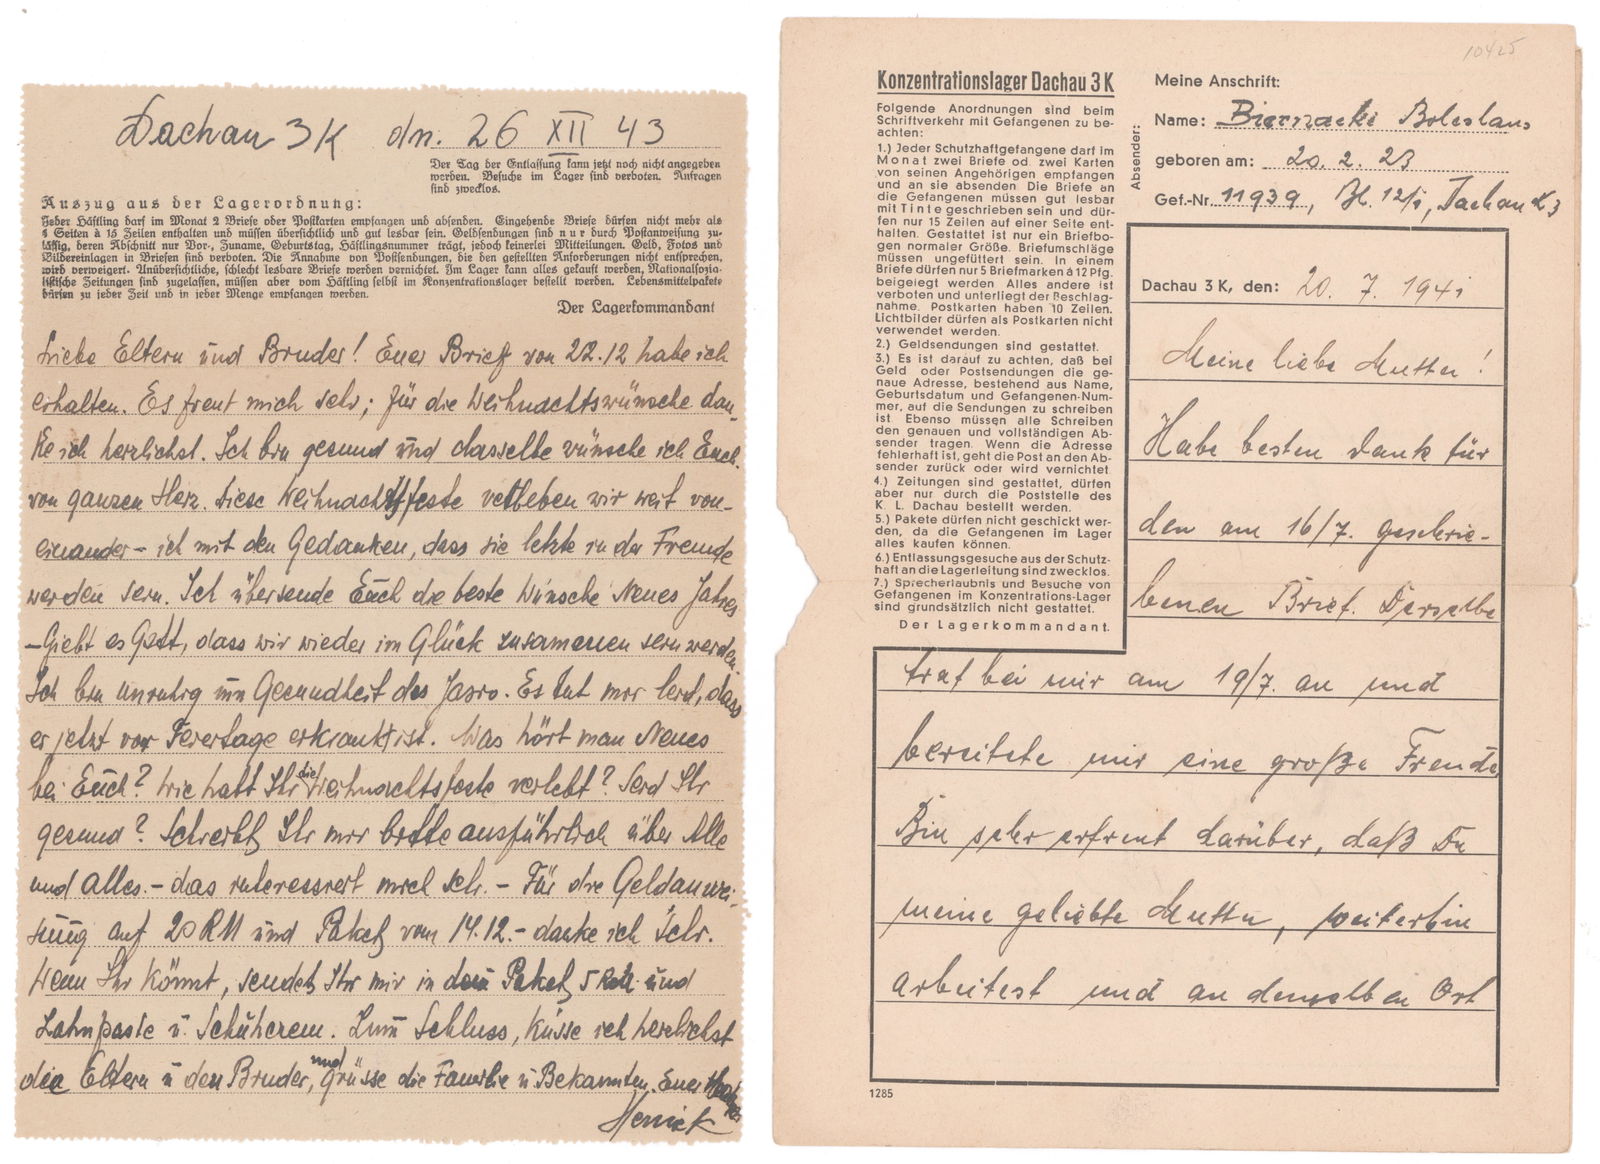 Dachau 3K dn. 26 XII 43
Der Tag der Entlassung kann jetzt noch nicht angegeben
werden. Besuche im Lager sind verboten. Anfragen
sind zwecklos.
Auszug aus der Lagerordnung:
Jeder Häftling darf im Monat 2 Briefe oder Postkarten empfangen und absenden. Eingehende Briefe dürfen nicht mehr als
4 Seiten à 15 Zeilen enthalten und müssen übersichtlich und gut lesbar sein. Geldsendungen sind nur durch Postanweisung zu-
lässig, deren Abschnitt nur Vor-, Zuname, Geburtstag, Häftlingsnummer trägt, jedoch keinerlei Mitteilungen. Geld, Fotos und
Bildereinlagen in Briefen sind verboten. Die Annahme von Postsendungen, die den gestellten Anforderungen nicht entsprechen,
wird verweigert. Unübersichtliche, schlecht lesbare Briefe werden vernichtet. Im Lager kann alles gekauft werden. Nationalsozia-
listische Zeitungen sind zugelassen, müssen aber vom Häftling selbst im Konzentrationslager bestellt werden. Lebensmittelpakete
dürfen zu jeder Zeit und in jeder Menge empfangen werden.
Der Lagerkommandant
Liebe Eltern und Bruder! Euer Brief von 22.12 habe ich
erhalten. Es freut mich sehr; für die Weihnachtswünsche dan-
ke ich herzlichst. Ich bin gesund und dasselbe wünsche ich Euch
von ganzen Herz. Diese Weihnachtsfeste verleben wir weit von-
einander - ich mit den Gedanken, dass sie letzte in der Fremde
werden sein. Ich übersende Euch die beste Wünsche Neues Jahres
- Giebt es Gott, dass wir wieder im Glück zusammen sein werden.
Ich bin unruhig um Gesundheit des Jasio. Es tut mir leid, dass
er jetzt vor Feiertage erkrankt ist. Was hört man Neues
bei Euch? Wie habt Ihr die Weihnachtsfeste verlebt? Seid Ihr
gesund? Schreibt Ihr mir bitte ausführlich über Alle
und Alles. - das interessiert mich sehr. - Für die Geldanwei-
sung auf 20 RM und Paket vom 14.12. - danke ich sehr.
Wenn Ihr könnt, sendet Ihr mir in dem Paket 5 und
Zahnpaste u. Schuhcrem. Zum Schluss, küsse ich herzlichst
die Eltern u den Bruder, und grüsse die Familie u Bekannten. Euer
Heniek
10425
Konzentrationslager Dachau 3 K
Folgende Anordnungen sind beim
Schriftverkehr mit Gefangenen zu be-
achten:
1.) Jeder Schutzhaftgefangene darf im
Monat zwei Briefe od. zwei Karten
von seinen Angehörigen empfangen
und an sie absenden. Die Briefe an
die Gefangenen müssen gut lesbar
mit Tinte geschrieben sein und dür-
fen nur 15 Zeilen auf einer Seite ent-
halten. Gestattet ist nur ein Briefbo-
gen normaler Größe. Briefumschläge
müssen ungefüttert sein. In einem
Briefe dürfen nur 5 Briefmarken à 12 Pfg.
beigelegt werden. Alles andere ist
verboten und unterliegt der Beschlag-
nahme. Postkarten haben 10 Zeilen.
Lichtbilder dürfen als Postkarten nicht
verwendet werden.
2.) Geldsendungen sind gestattet.
3.) Es ist darauf zu achten, daß bei
Geld oder Postsendungen die ge-
naue Adresse, bestehend aus Name,
Geburtsdatum und Gefangenen-Num-
mer, auf die Sendungen zu schreiben
ist. Ebenso müssen alle Schreiben
den genauen und vollständigen Ab-
sender tragen. Wenn die Adresse
fehlerhaft ist, geht die Post an den Ab-
sender zurück oder wird vernichtet.
4.) Zeitungen sind gestattet, dürfen
aber nur durch die Poststelle des
K. L. Dachau bestellt werden.
5.) Pakete dürfen nicht geschickt wer-
den, da die Gefangenen im Lager
alles kaufen können.
6.) Entlassungsgesuche aus der Schutz-
haft an die Lagerleitung sind zwecklos.
7.) Sprecherlaubnis und Besuche von
Gefangenen im Konzentrations-Lager
sind grundsätzlich nicht gestattet.
Der Lagerkommandant.
Absender:
Meine Anschrift:
Name: Biernacki Boleslaus
geboren am: 20. 2. 23
Gef.-Nr. 11939, Bl. 12/1, Dachau K3
Dachau 3 K, den: 20. 7. 1941
Meine liebe Mutter!
Habe besten Dank für
den am 16/7. geschrie-
benen Brief. Derselbe
traf bei mir am 19/7. an und
bereitete mir eine große Freude
Bin sehr erfreut darüber, daß Du
meine geliebte Mutter, weiterhin
arbeitest und an demselben Ort
1285